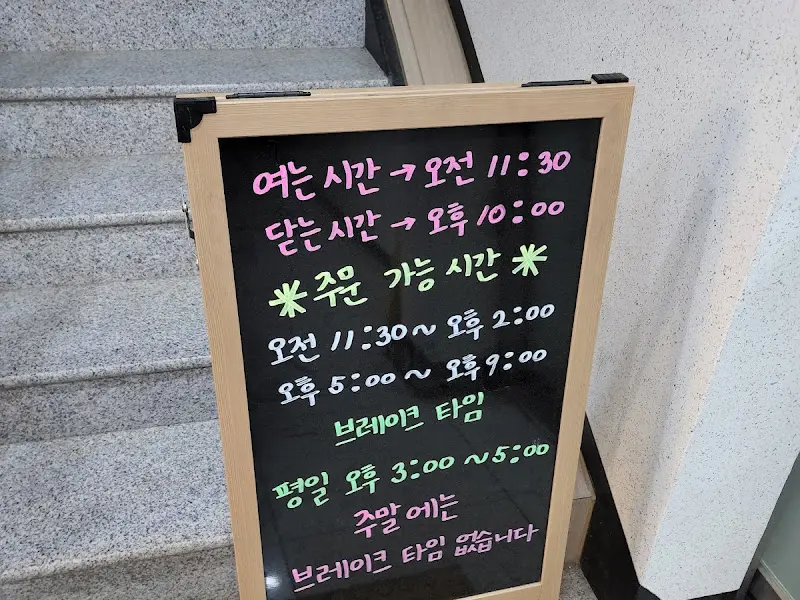 여는 시간 → 오전 11:30
닫는시간 → 오후 10:00
* 주문 가능 시간 *
오전 11:30 ~ 오후 2:00
오후 5:00 ~ 오후 9:00
브레이크 타임
평일 오후 3:00 ~ 5:00
주말 에는
브레이크 타임 없습니다